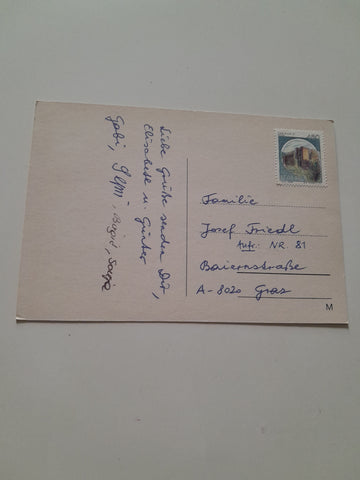 Liebe Grüße senden Dir,
Elisabeth u. Günter
Gabi,
Familie
Josef Friedl
NR. 81
Baiernstraße
A-8020 Graz
M